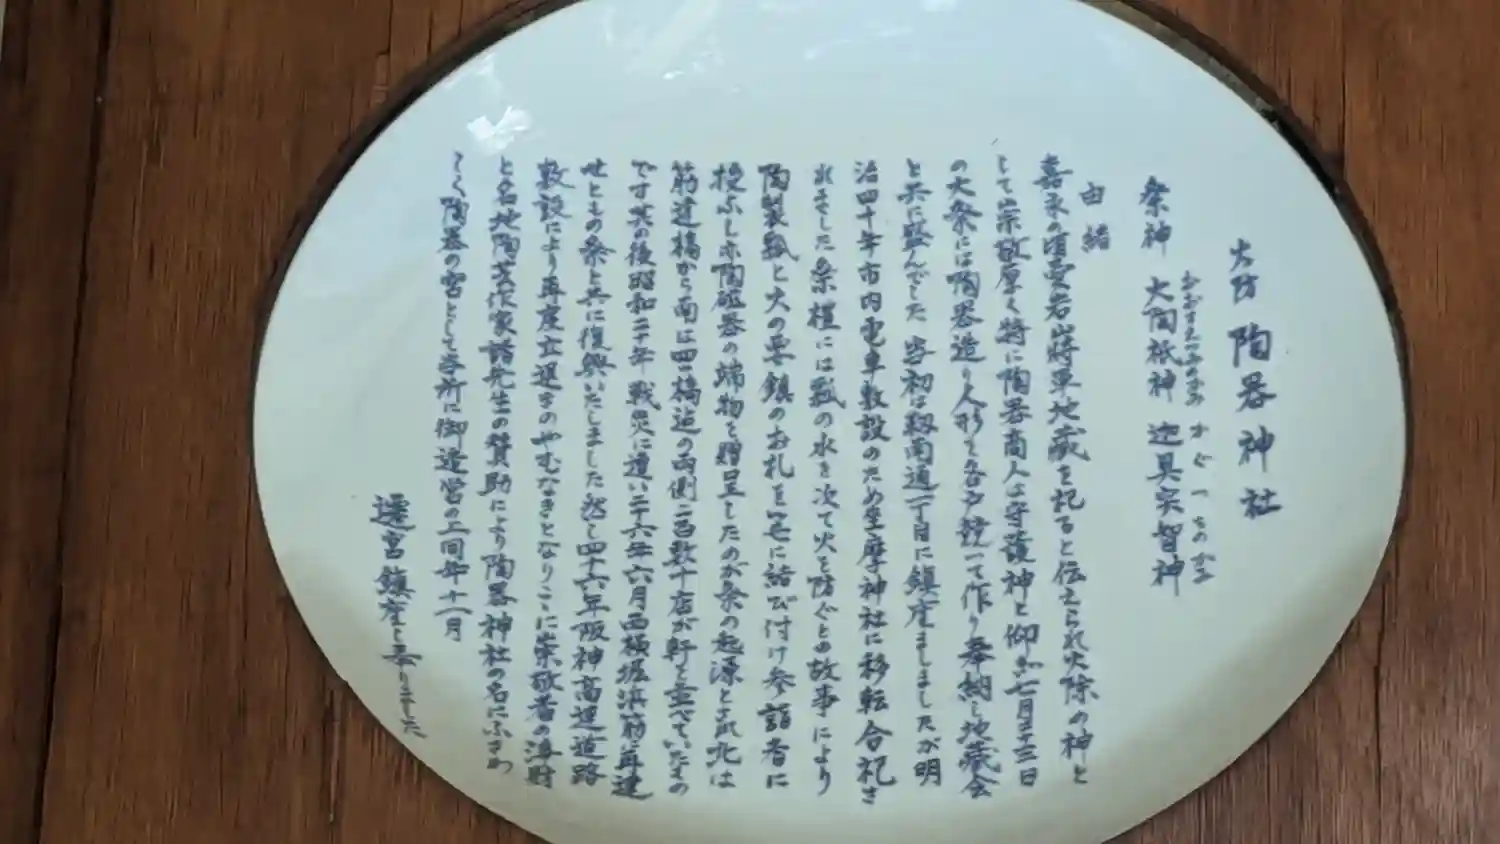 火防 陶器神社
祭神 大陶祇神 迦具突智神
おおすえつみのかみ かぐつちのかみ
由緒
嘉永の頃愛宕山将軍地蔵を祀ると伝えられ火除の神と
して崇敬厚く特に陶器商人は守護神と仰が七月二十三日
の大祭には陶器造り人形を各戸競って作り奉納し地蔵会
と共に盛んでした 当初は靱南通一丁目に鎮座ましましたが明
治四十年市内電車敷設のため坐摩神社に移転合祀さ
れました祭礼には瓢の水を以て火を防ぐとの故事により
陶製瓢と火の要鎮のお札を笹に結び付け参詣者に
授ふし亦陶磁器の端物を贈呈したのが祭の起源とされ北は
筋違橋から南は四ツ橋迄の両側二百数十店が軒を並べていたもの
です其の後昭和二十年戦災に遭い二十六年六月西横堀浜筋に再建
せともの祭と共に復興いたしました然し四十六年阪神高速道路
敷設により再度立退きのやむなきとなりここに崇敬者の浄財
と各地陶芸作家諸先生の賛助により陶器神社の名にふさわ
しく陶器の宮として当所に御造営の上同年十一月
遷宮鎮座を奉りました